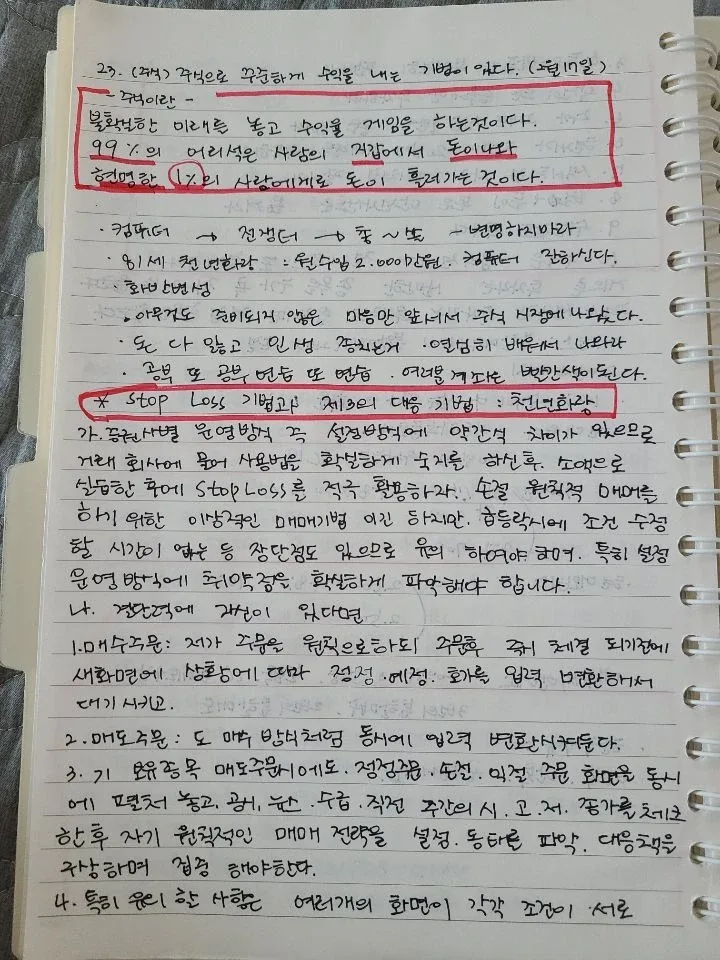 23. (주식) 주식으로 꾸준하게 수익을 내는 기법이 있다. (2월 17일)
- 주식이란 -
불확실한 미래를 놓고 수익률 게임을 하는것이다.
99%의 어리석은 사람의 지갑에서 돈이나와
현명한 1%의 사람에게로 돈이 흘러가는 것이다.
· 컴퓨터 → 전쟁터 → 총~알 - 변명하지마라
· 81세 천년화랑 : 월수입 2.000만원. 컴퓨터 잘하신다.
· 화반변성
· 아무것도 준비되지 않은 마음만 앞서서 주식 시장에 나왔다.
· 돈 다 잃고 인생 종치는거 · 열심히 배워서 나와라
· 공부 또 공부 연습 또 연습 · 여러분 계좌는 빨간색이된다.
* Stop Loss 기법과 제3의 대응 기법 : 천년화랑
가. 증권사별 운영방식 즉 설정방식에 약간식 차이가 있으므로
거래 회사에 물어 사용법을 확실하게 숙지를 하신후. 소액으로
실습한 후에 Stop Loss를 적극 활용하라. 손절 원칙적 매매를
하기 위한 이상적인 매매기법 이긴 하지만. 급등락시에 조건 수정
할 시간이 없는 등 장단점도 있으므로 유의 하여야 하며. 특히 설정
운영방식에 취약점을 확실하게 파악해야 합니다.
나. 결단력에 자신이 있다면
1. 매수주문: 저가 주문을 원칙으로하되 주문후 즉시 체결 되기전에
새화면에 상황에 따라 정정. 예정. 호가를 입력 변환해서
대기 시키고.
2. 매도주문 : 도 매수 방식처럼 동시에 입력 변환시켜둔다.
3. 기 보유종목 매도주문시에도. 정정주문. 손절. 익절 주문 화면을 동시
에 펼쳐 놓고. 공시, 뉴스. 수급. 직전 주간의 시. 고. 저. 종가를 체크
한후 자기 원칙적인 매매 전략을 설정. 동태를 파악. 대응책을
구상하며 집중 해야한다.
4. 특히 유의 할 사항은 여러개의 화면이 각각 조건이 서로